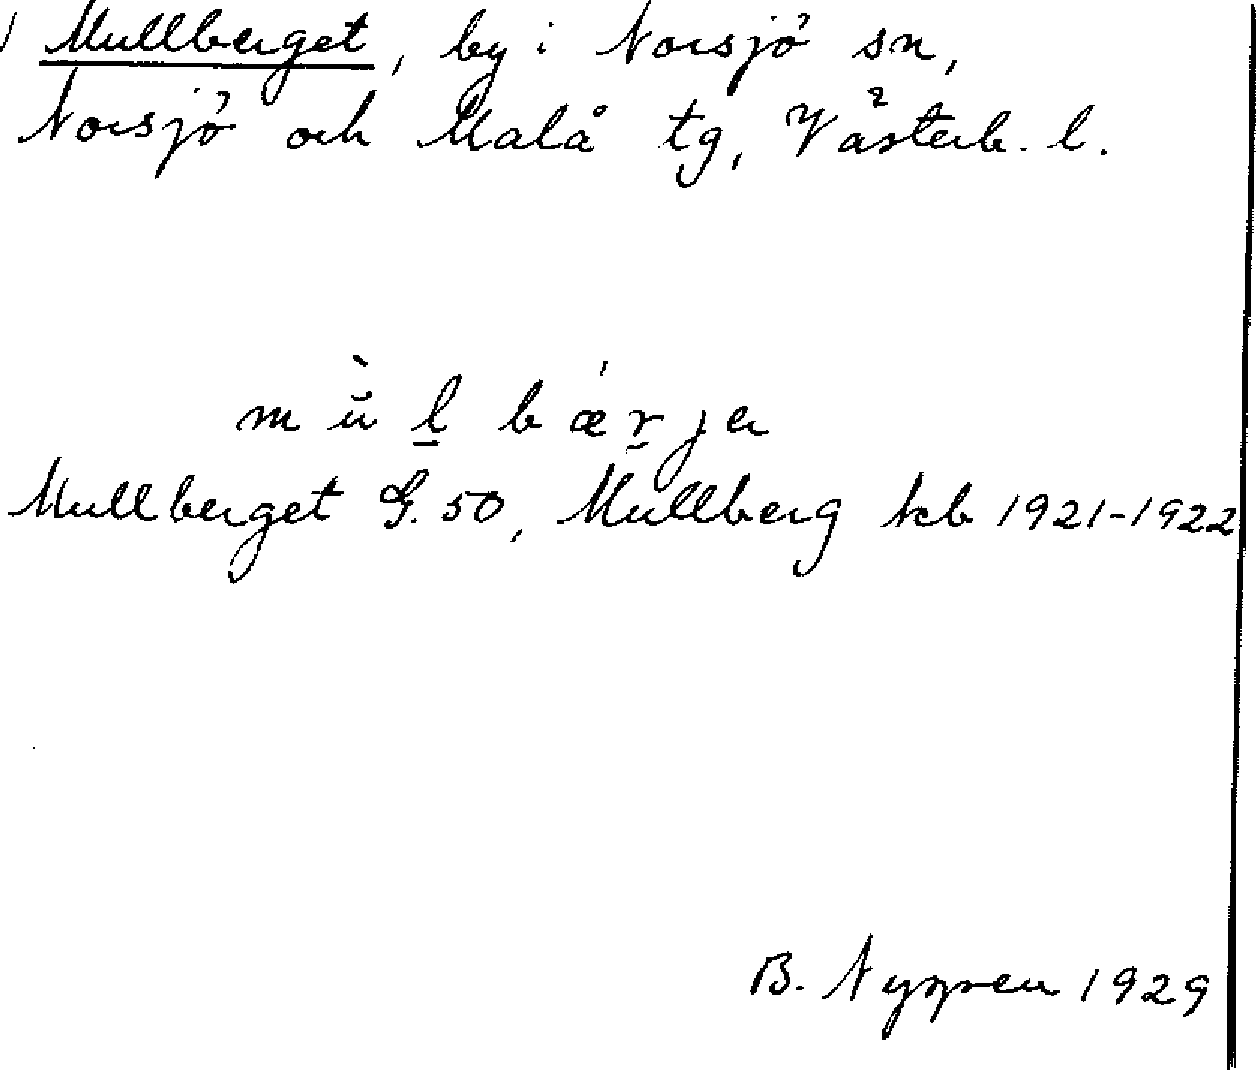 Mullberget, by i Norsjö sn,
Norsjö och Malå tg, Västerb. l.
mù̄l̲ bǽr̲jer
Mullberget G. 50, Mullberg kb 1921-1922
B. Nygren 1929